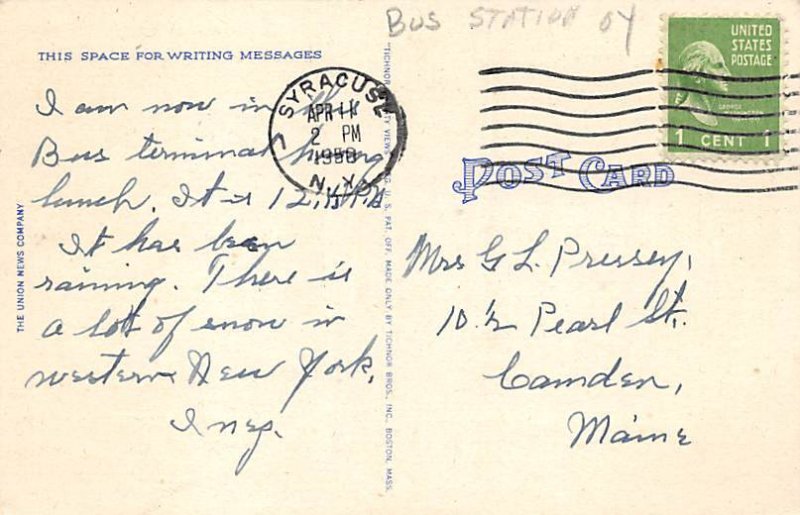 Bus Station
THIS SPACE FOR WRITING MESSAGES
I am now in the
Bus terminal having
lunch. It is 12.15 P.M
It has been
raining. There is
a lot of snow in
western New York.
Inez.
THE UNION NEWS COMPANY
SYRACUSE
APR 11
2 PM
1950
N.Y.
U.S. PAT. OFF. MADE ONLY BY TICHNOR BROS., INC., BOSTON, MASS.
UNITED
STATES
POSTAGE
GEORGE
WASHINGTON
1 CENT 1
POST CARD
Mrs G L Pressey,
10 1/2 Pearl St.
Camden,
Maine